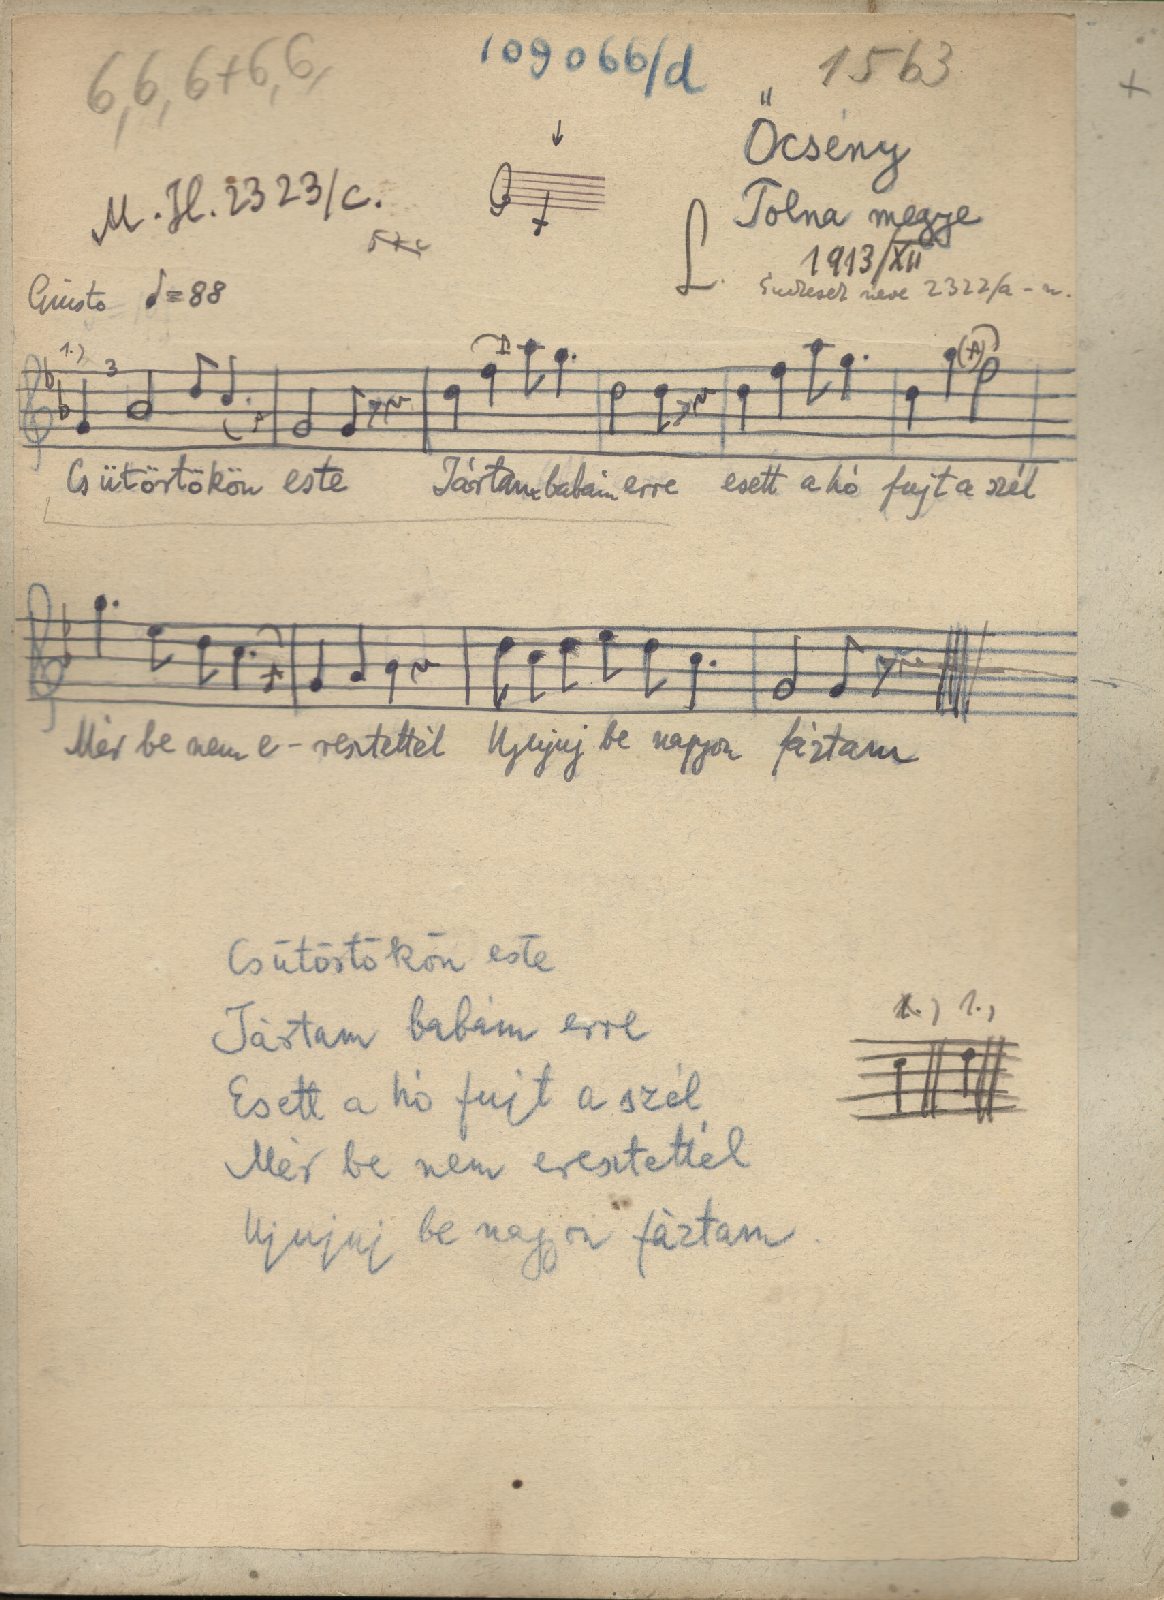 6,6,6+6,6,
109066/d
1563
Őcsény
Tolna megye
1913/XII
M.H. 2323/c.
L.
neve 2322/a-n.
Giusto ♩=88
1.) 3
Csütörtökön este Jártam babám erre esett a hó fujt a szél
Mér be nem e-resztettél Ujujuj be nagyon fáztam
Csütörtökön este
Jártam babám erre
Esett a hó fujt a szél
Mér be nem eresztettél
Ujujuj be nagyon fáztam.
1.,